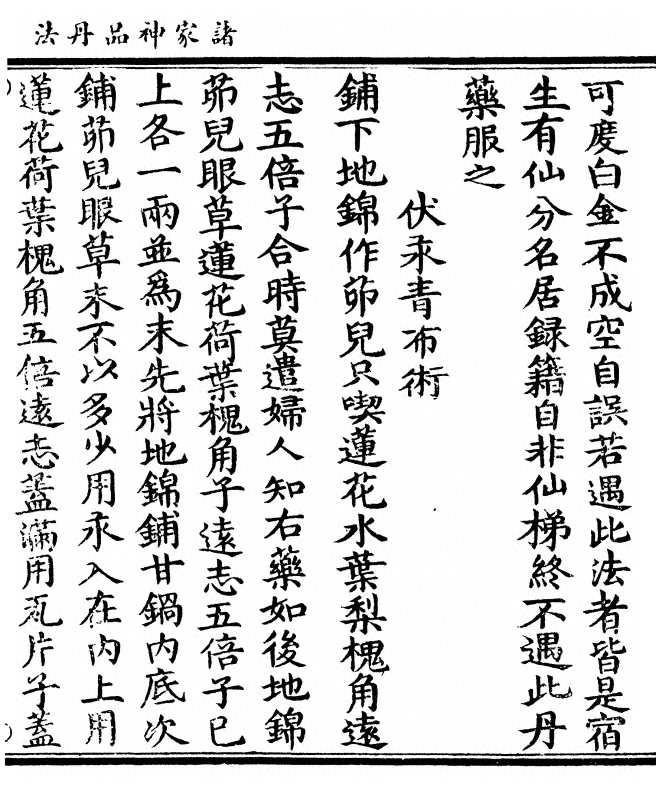 諸家神品丹法
可度白金不成空自誤若遇此法者皆是宿
生有仙分名居録籍自非仙梯終不遇此丹
藥服之
伏汞青布術
鋪下地錦作茆兒只喫蓮花水葉梨槐角遠
志五倍子合時莫遣婦人知右藥如後地錦
茆兒眼草蓮花荷葉槐角子遠志五倍子已
上各一兩並爲末先將地錦鋪甘鍋内底次
鋪茆兒眼草末不以多少用汞入在内上用
蓮花荷葉槐角五倍遠志蓋滿用瓦片子蓋